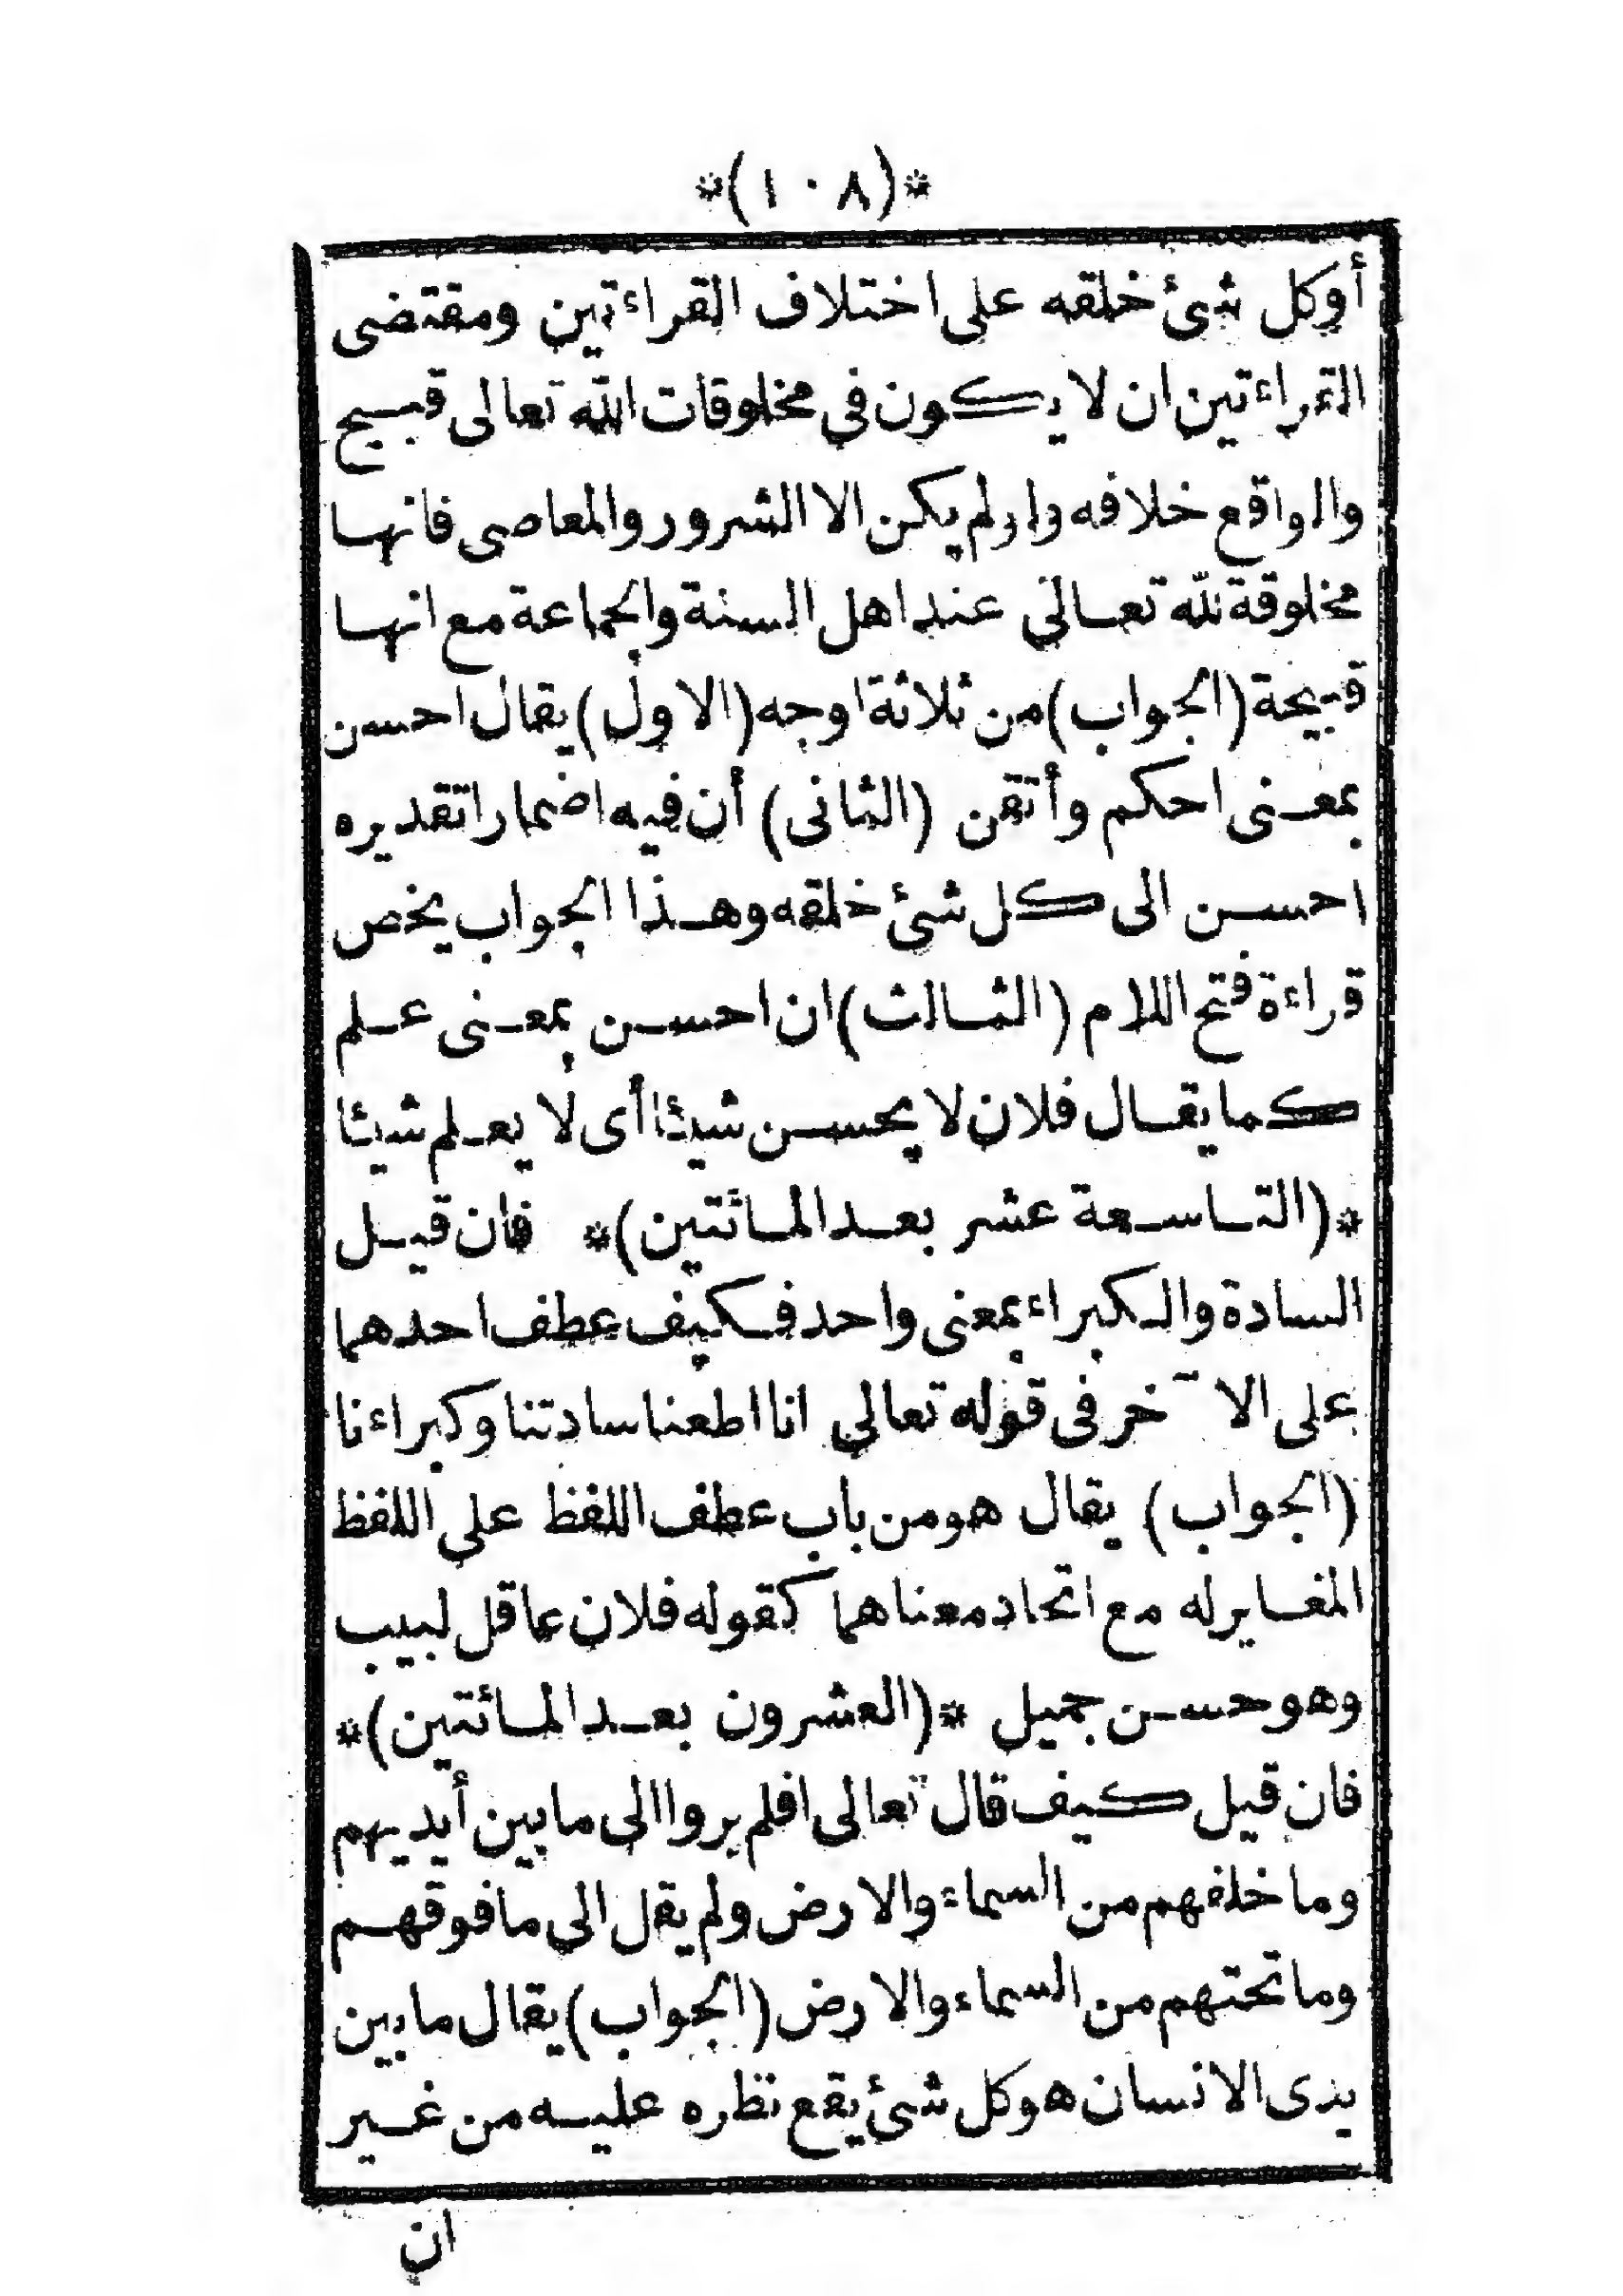 *(١٠٨)*
أوكل شئ خلقه على اختلاف القراءتين ومقتضى
القراءتين ان لا يكون في مخلوقات الله تعالى قبيح
والواقع خلافه ولو لم يكن الا الشرور والمعاصى فانها
مخلوقة لله تعالى عند اهل السنة والجماعة مع انها
قبيحة (الجواب) من ثلاثة اوجه (الاول) يقال احسن
بمعنى احكم وأتقن (الثانى) أن فيه اضمارا تقديره
احسن الى كل شئ خلقه وهذا الجواب يخص
قراءة فتح اللام (الثالث) ان احسن بمعنى علم
كما يقال فلان لا يحسن شيئا أى لا يعلم شيئا
*(التاسعة عشر بعد المائتين)* فان قيل
السادة والكبراء بمعنى واحد فكيف عطف احدهما
على الآخر فى قوله تعالى انا اطعنا سادتنا وكبراءنا
(الجواب) يقال هو من باب عطف اللفظ على اللفظ
المغاير له مع اتحاد معناهما كقوله فلان عاقل لبيب
وهو حسن جميل *(العشرون بعد المائتين)*
فان قيل كيف قال تعالى افلم يروا الى ما بين أيديهم
وما خلفهم من السماء والارض ولم يقل الى ما فوقهم
وما تحتهم من السماء والارض (الجواب) يقال ما بين
يدى الانسان هو كل شئ يقع نظره عليه من غير
ان